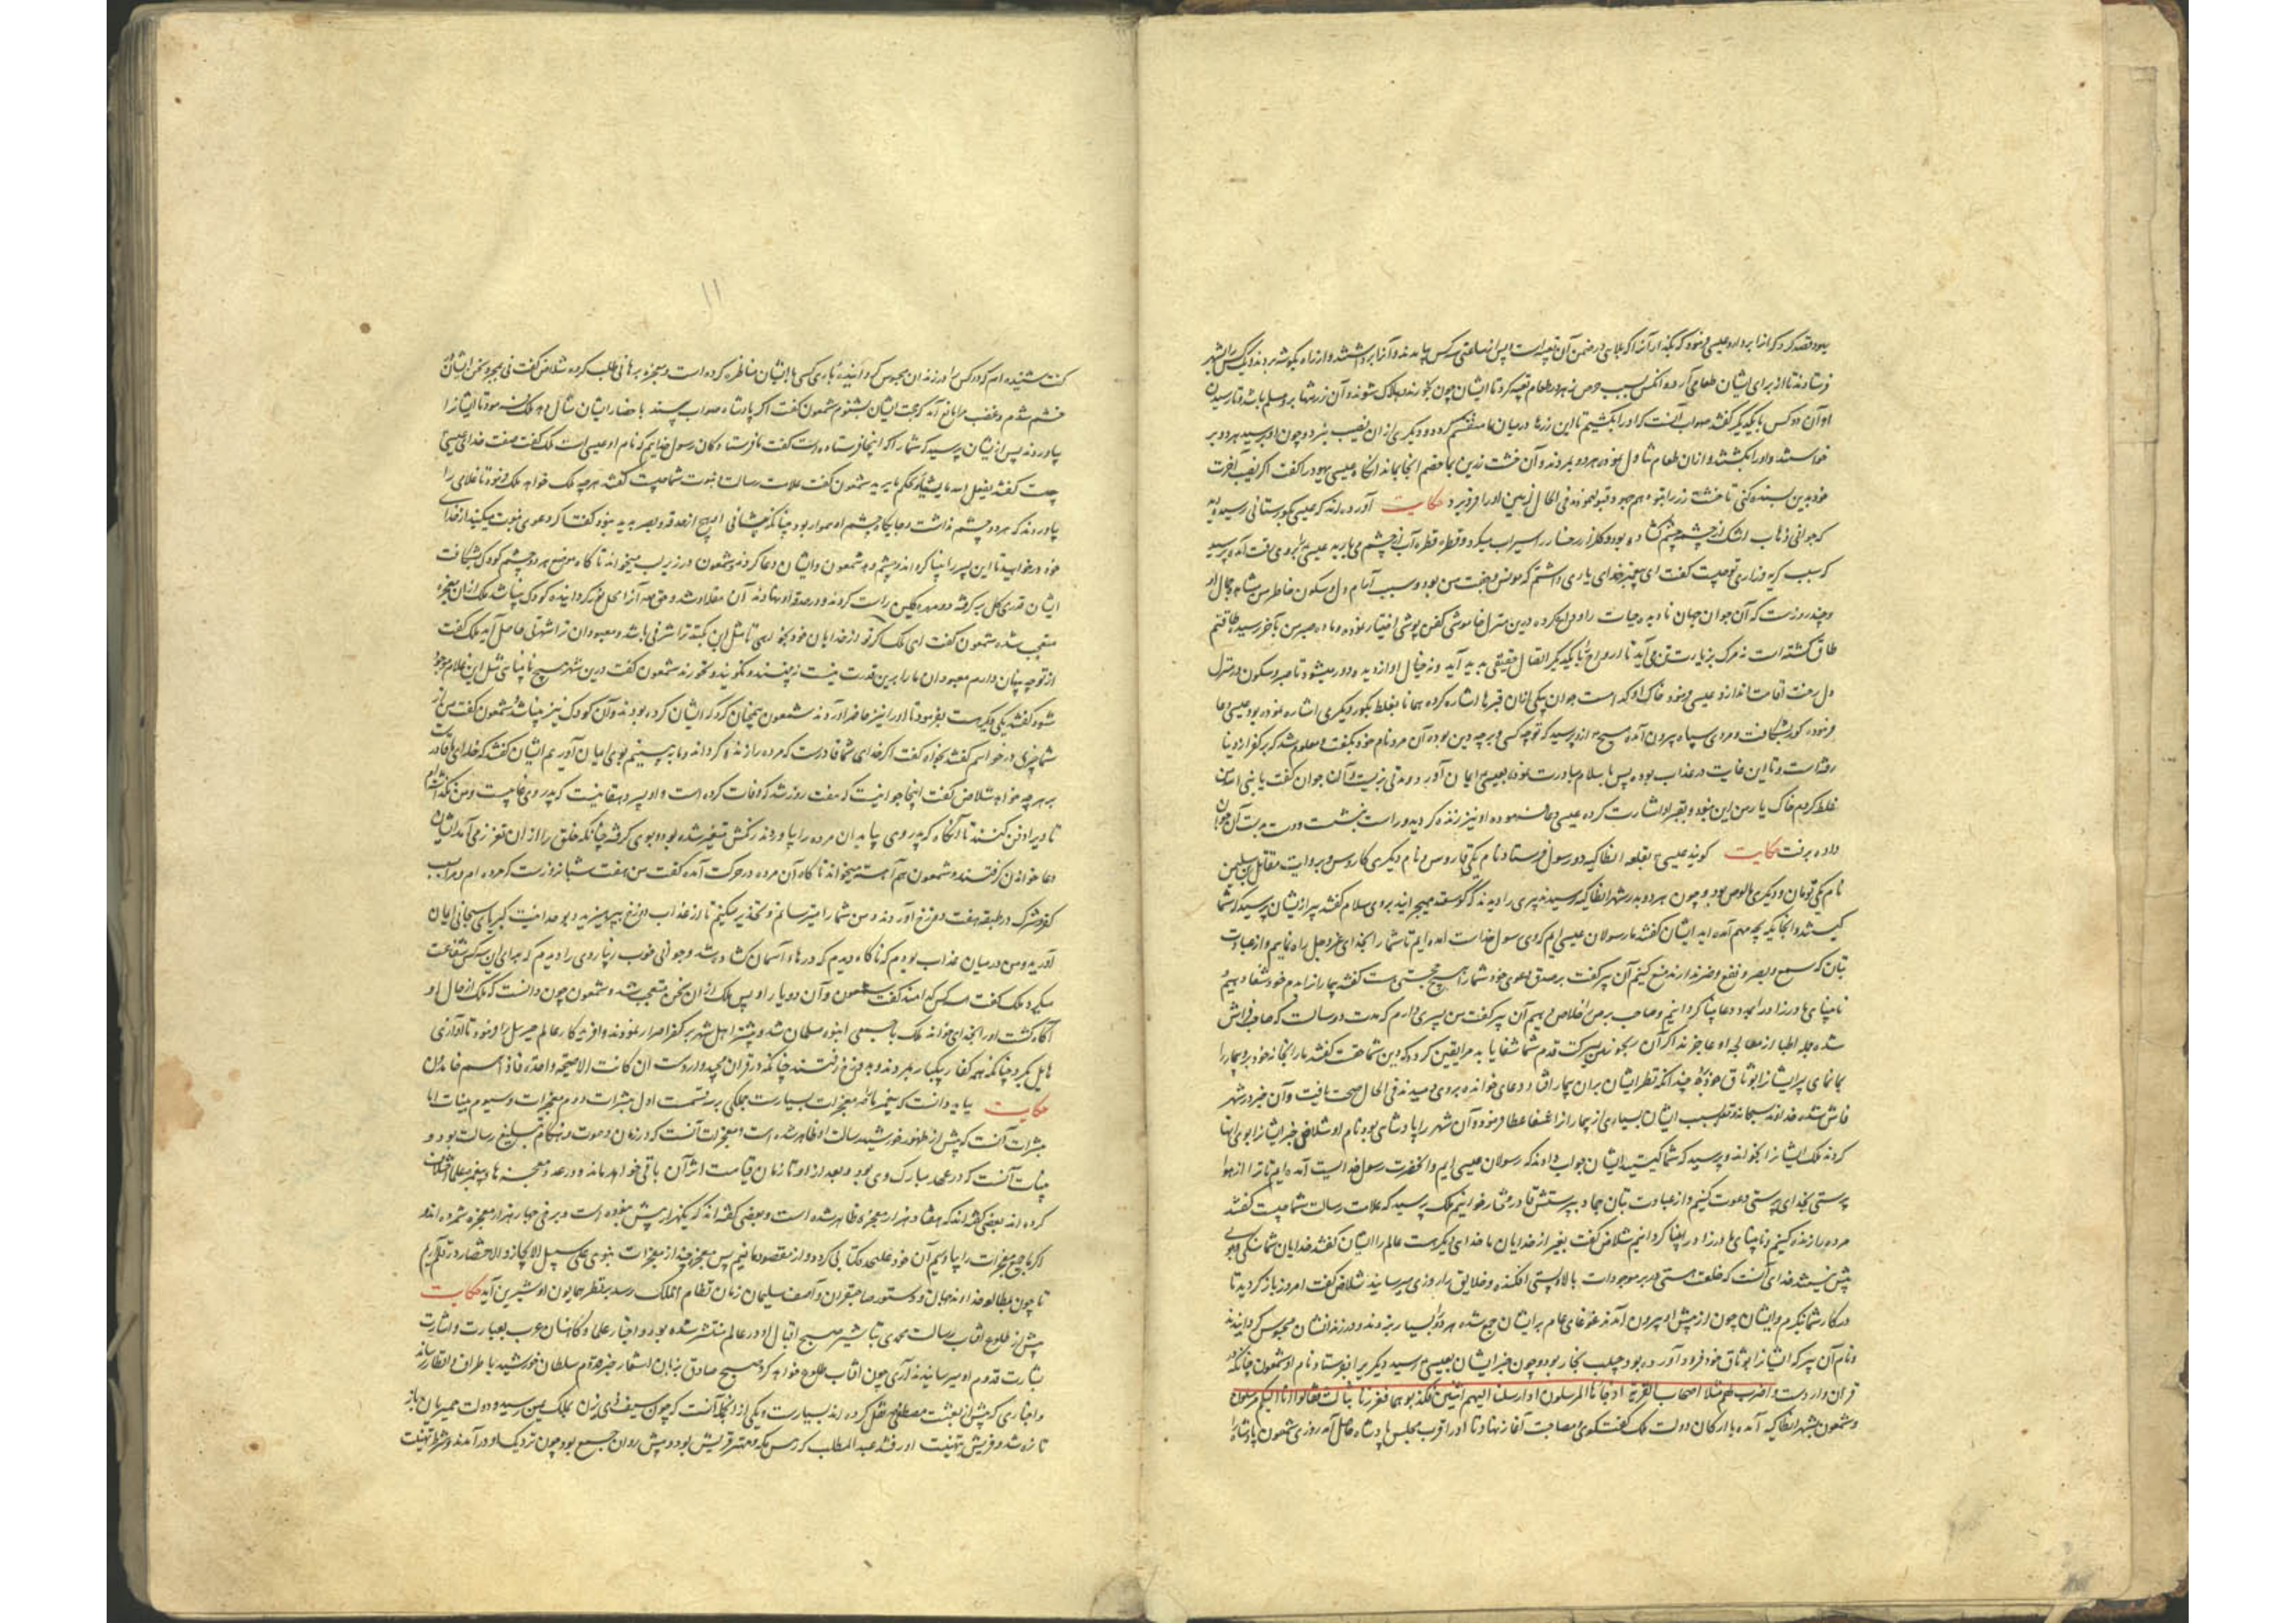 یهود قصد کرد که آنرا بردارد عیسی فرمود که بگذار آنرا که بلایی در ضمن آن تعبیه است پس از ساعتی سه کس بیامدند و آنرا برداشتند و از راه بگوشه بردند و یک کس را بشهر
فرستادند تا از برای ایشان طعامی آرد و آنکس بسبب حرص زهر در طعام تعبیه کرد تا ایشان چون بخورند هلاک شوند و آن زر تنها برو مسلم باشد و تا رسیدن
او آن دو کس با یکدیگر گفتند صواب آنست که او را بکشیم تا این زرها در میان ما منقسم گردد و دیگری از آن نصیب نبرد و چون او برسید هر دو بر
خواستند و او را بکشتند و از آن طعام تناول نمودند هر دو بمردند و آن خشت زرین بماند آنگاه عیسی یهود را گفت اگر نصیب آخرت
خود بدین بسنده کنی تا خشت زر را بتو دهم جهود قبول نموده فی الحال زمین او را فرو برد حکایت آورده اند که عیسی بگورستانی رسید دید
که جوانی اشک از چشم چشم کشاده بود و گلزار رخسار را سیراب میکرد و قطره قطره آب از چشم می بارید عیسی برو می رفت آمد و پرسید
که سبب گریه و زاری تو چیست گفت ای پیغمبر خدای یاری داشتم که مونس وجفت من بود و سبب آرام دل و سکون خاطر من مشاهده جمال او
و چند روزست که آن جوان جهان نادیده حیات را وداع کرده درین منزل خاموشی کفن پوشی اختیار نموده و ماده صبر من بآخر رسید طاقتم
طاق گشته است نه مرگ بزیارت تن می آید تا ارواح را با یکدیگر اتصال حقیقی پدید آید و نه خیال او از دیده دور میشود تا صبر و سکون در منزل
دل رخت اقامت اندازد عیسی فرمود خاک او کدام است جوان بیکی از آن قبرها اشاره کرده همانا بغلط بگور دیگری اشاره نموده بود عیسی دعا
فرموده گور بشکافت و مردی سیاه بیرون آمده مسیح ازو پرسید که تو چه کسی و بر چه دین بوده آن مرد نام خود بگفت و معلوم شد که بر کفر از دنیا
رفته است و تا این غایت در عذاب بوده پس باسلام مبادرت نموده بعیسی ایمان آورد و مدتی بزیست و آن جوان گفت یا نبی الله من
غلط کردم خاک یار من این نبود و بقبر او اشارت کرده عیسی دعا فرموده او نیز زنده گردید و راست بنشست و دست بدست آن جوان
داده برفت حکایت گویند عیسی بقلعه انطاکیه دو رسول فرستاد نام یکی قاروس و نام دیگری کاروس و بروایت مقاتل بن سلیمن
نام یکی تومان و دیگری مالوص بود و چون هر دو بدر شهر انطاکیه رسیدند پیری را دیدند که گوسفند میچرانید بروی سلام گفتند پیر ازیشان پرسید که شما
کیستید و اینجا بکه چه مهم آمده اید ایشان گفتند ما رسولان عیسی ایم که وی رسول خداست آمده ایم تا شما را بخدای عزوجل راه نماییم و از عبادت
بتان که سمع و بصر و نفع و ضر ندارند منع کنیم آن پیر گفت بر صدق دعوی خود شما را هیچ حجتی هست گفتند بیمار انرا بدم خود شفا دهیم و
نابینای مادرزاد را بمجرد دعا بینا گردانیم و صاحب برص را خلاص دهیم آن پیر گفت من پسری دارم که مدت دو سالست که صاحب فراش
شده جمله اطبا از معالجه او عاجزند اگر آن رنجور بدین برکت قدم شما شفا یابد مرا یقین گردد که دین شما حقست گفتند ما را بخانه خود بر و بیمار را
بما نمای پیر ایشانرا بوثاق خود برد چندانکه نظر ایشان بران بیمار افتاد و دعای خوانده بروی دمیدند فی الحال صحت یافت و آن خبر در شهر
فاش شده خداوند سبحانه و تعالی بسبب ایشان بسیاری از بیماران را شفا عطا فرمود و آن شهر را پادشاهی بود نام او شلاض خبر ایشانرا بوی انها
کردند ملک ایشانرا بخواند و پرسید که شما کیستید ایشان جواب دادند که رسولان عیسی ایم و آنحضرت رسول خداییست آمده ایم تا ترا از هوا
پرستی بخدای پرستی دعوت کنیم و از عبادت بتان جماد بپرستش قادر مختار خوانیم ملک پرسید که علامت رسالت شما چیست گفتند
مرده را زنده کنیم و نابینای مادرزاد را بینا گردانیم شلاض گفت بغیر از خدایان ما خدای دیگر هست عالم را ایشان گفتند خدایان شما سنگی و چوبی
بیش نیستند خدای آنست که خلعت هستی در بر موجودات بالا و پستی افکنده و خلایق را روزی میرساند شلاض گفت امروز بازگردید تا
در کار شما بنگرم و ایشان چون از پیش او بیرون آمدند غوغای عام بر ایشان جمع شده هر دو را بسیار بزدند و در زندانشان محبوس گردانیدند
و نام آن پیر که ایشانرا بوثاق خود فرود آورده بود حبیب نجار بود و چون خبر ایشان بعیسی رسید دیگری را بفرستاد نام او شمعون چنانکه در
قران واردست و اضرب لهم مثلا اصحاب القریة اذ جائها المرسلون اذ ارسلنا الیهم اثنین فکذبوهما فعززنا بثالث فقالوا انا الیکم مرسلون
و شمعون بشهر انطاکیه آمده با ارکان دولت ملک گفت و گوی مصاحبت آغاز نهاد تا او را قرب مجلس پادشاه حاصل آمد روزی شمعون پادشاه را
۱۱
گفت شنیده ام که دو کس را در زندان محبوس گردانیده باری کسی با ایشان مناظره کرده است و معجزه برهانی طلب کرده شلاض گفت نی بمجرد سخن ایشان
خشم شدم و غضب مرا مانع آمد که حجت ایشان بشنوم شمعون گفت اگر پادشاه صواب بیند باحضار ایشان مثال دهد ملک فرمود تا ایشانرا
بیاوردند پس ازیشان پرسید که شما را که اینجا فرستاده است گفت ما فرستادگان رسول خداییم که نام او عیسی است ملک گفت صفت خدای عیسی
چیست گفتند یفعل الله ما یشاء و یحکم ما یرید شمعون گفت علامت رسالت و نبوت شما چیست گفتند هرچه ملک خواهد ملک فرمود تا غلامی را
بیاوردند که هر دو چشم نداشت و جایگاه چشم او هموار بود چنانکه پیشانی او هیچ از حدقه و بصر پدید نبود گفت اگر دعوی نبوت میکنید از خدای
خود درخواهید تا این پسر را بینا کرداند و چشم دهد شمعون و ایشان دعا کردند و شمعون در زیر لب میخواند تا گاه موضع هر دو چشم کودک بشکافت
ایشان قدری گل برگرفته دو مهره گلین راست کردند و در حدقه او نهادند آن مقله او شد و حق تعالی آنرا محل نور گردانیده کودک بینا شد ملک از آن معجزه
متعجب شده شمعون گفت ای ملک اگر تو از خدایان خود بخواهی تا مثل این بکنند ترا شرفی باشد و معبودان ترا شهرتی حاصل آید ملک گفت
از تو چه پنهان دارم معبودان ما را برین قدرت نیست نه بینند و نگویند و نخورند شمعون گفت درین شهر هیچ نابینایی مثل این غلام موجود
شود گفتند یکی دیگر هست بفرمود تا او را نیز حاضر آوردند شمعون همچنان کرد که ایشان کرده بودند و آن کودک نیز بینا شد شمعون گفت من از
شما چیزی درخواهم گفتند بخواه گفت اگر خدای شما قادرست که مرده را زنده گرداند و ما به بینیم بوی ایمان آوریم ایشان گفتند که خدای ما قادرست
بر هرچه خواهد شلاض گفت اینجا جوانیست که هفت روز شد که وفات کرده است و او پسر دهقانیست که پدر وی غایبست و من نگذاشته ام
تا دیرا دفن کنند تا آنگاه که پدر وی بیاید آن مرده را بیاوردند رنگش متغیر شده بود و بوی گرفته چنانکه خلق را از آن تعزز می آمد ایشان
دعا خواندن گرفتند و شمعون هم آهسته میخواند تا گاه آن مرده در حرکت آمده گفت من هفت شبانروزست که مرده ام و مرا بسبب
کفر و شرک در طبقه هفت دوزخ آوردند و من شما را میترسانم و تحذیر میکنم تا از عذاب دوزخ بپرهیزید و بوحدانیت کبریای سبحانی ایمان
آورید و من در میان عذاب بودم که ناگاه دیدم که درهای آسمان گشاده شد و جوانی خوب رخساروی را دیدم که برای این سه کس شفاعت
میکرد ملک گفت سه کس کدامند گفت شمعون و آن دو یار او پس ملک از آن سخن متعجب شد و شمعون چون دانست که ملک از حال او
آگاه گشت او را بخدای خواند ملک با جمعی انبوه مسلمان شد و بیشتر اهل شهر بر کفر اصرار نمودند و آفریدگار عالم جبرئیل را فرمود تا آوازی
هایل بکرد چنانکه همه کفار بیکبار بمردند و بدوزخ رفتند چنانکه در قران مجید واردست ان کانت الا صیحة واحدة فاذا هم خامدون
حکایت بباید دانست که پیغمبر ما را معجزات بسیارست جملگی بر سه قسمت اول مبشرات دوم معجزات و سیوم بینات اما
مبشرات آنست که پیش از ظهور خورشید رسالت او ظاهر شده است و معجزات آنست که در زمان دعوت و هنگام تبلیغ رسالت بود و
بینات آنست که در عهد مبارک وی بود و بعد از او تا زمان قیامت اثر آن باقی خواهد ماند و در عدد معجزه ها پیغمبر علما اختلاف
کرده اند بعضی گفته اند که هفتاد هزار معجزه ظاهر شده است و بعضی گفته اند که یکهزار بیش نبوده است و برخی چهار هزار معجزه شمرده اند و
اگر ما جمیع معجزات را بیاوریم آن خود علیحده کتابی گردد و از مقصود مانیم پس معجزه چند از معجزات نبوی علی سبیل الایجاز و الاختصار در قلم آریم
تا چون بمطالعه خداوند جهان و دستور صاحبقران و آصف سلیمان زمان نظام الملک رسد بنظر همایون او شیرین آید حکایت
پیش از طلوع آفتاب رسالت محمدی تباشیر صبح اقبال او در عالم منتشر شده بود و اخبار علما و کاهنان عرب بعبارت و اشارت
بشارت قدوم او میرسانیدند آری چون آفتاب طلوع خواهد کرد صبح صادق بزبان اسفار خبر قدوم سلطان خورشید باطراف و اقطار رساند
و اخباری که پیش از بعثت مصطفی نقل کرده اند بسیارست و یکی از آنجمله آنست که چون سیف ذی یزن بملک یمن رسید و دولت حمیریان باز
تازه شد و قریش بتهنیت او رفتند عبدالمطلب که رئیس مکه و مهتر قریش بود و پیش روان جمع بود چون نزدیک او درآمدند و شرط تهنیت